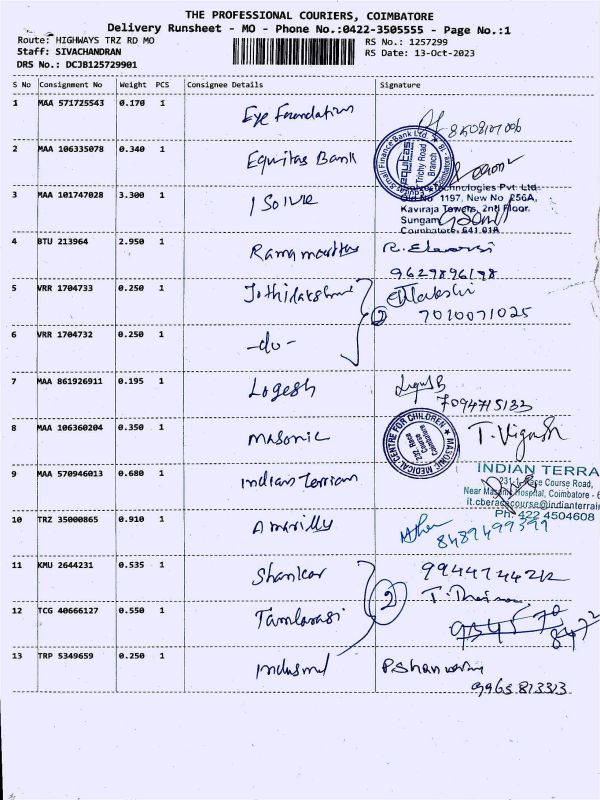 THE PROFESSIONAL COURIERS, COIMBATORE
Delivery Runsheet - MO - Phone No.:0422-3505555 - Page No.:1
Route: HIGHWAYS TRZ RD MO
RS No.: 1257299
Staff: SIVACHANDRAN
RS Date: 13-Oct-2023
DRS No.: DCJB125729901
S No Consignment No Weight PCS Consignee Details Signature
1 MAA 571725543 0.170 1 Eye Foundation
2 MAA 106335078 0.340 1 Equitas Bank
Equitas Small Finance Bank Ltd
equitas
Trichy Road
Branch
3 MAA 101747028 3.300 1 I Solve
Technologies Pvt. Ltd.
Old No 1197, New No 256A,
Kaviraja Towers, 2nd Floor.
Sungam
Coimbatore, 641 018
4 BTU 213964 2.950 1
9629896198
5 VRR 1704733 0.250 1 Jothilakshmi
2
7010071025
6 VRR 1704732 0.250 1 -do-
7 MAA 861926911 0.195 1 Logesh
7094715133
8 MAA 106360204 0.350 1 Masonic T. Vignesh
MASONIC MEDICAL CENTRE FOR CHILDREN
Race
Course
Coimbatore
9 MAA 570946013 0.680 1 Indian terrian
INDIAN TERRA
Race Course Road,
Near Masonic Hospital, Coimbatore - 6
it.cberacecourse@indianterrain
Ph: 422 4504608
10 TRZ 35000865 0.910 1 Amarilly
8489499399
11 KMU 2644231 0.535 1 Shankar
2
12 TCG 40666127 0.550 1 Tamilarasi
13 TRP 5349659 0.250 1 Indusind